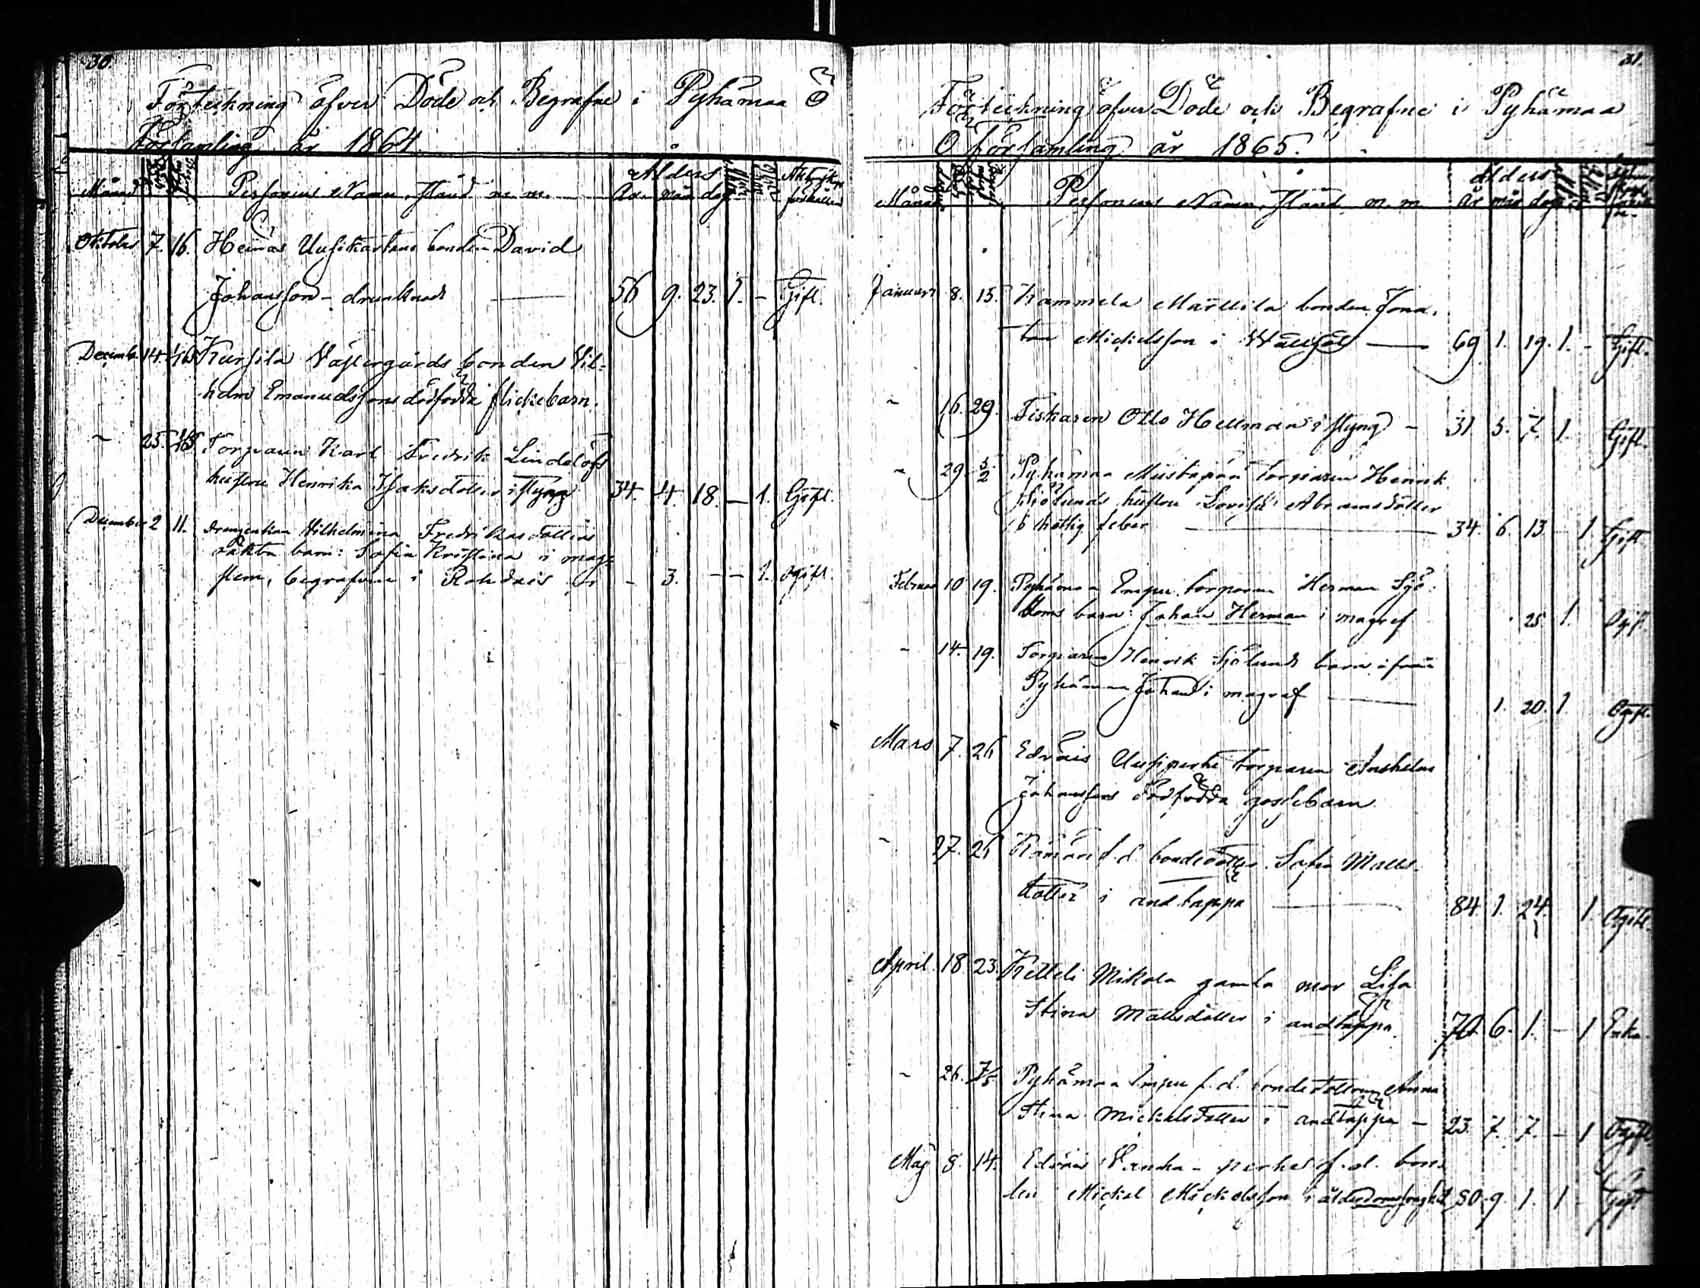 30.
Förteckning öfver Döde och Begrafne i Pyhämaa Ö
Församling år 1864.
Ålders
Månad Personens Namn, Stånd m. m. År mån dag
October 7. 16. Heinäs Uusikartano bonden David
Johansson - drunknade 56 9. 23. 1. - Gift.
Decemb. 14. Kursila Västergårds bonden Vil-
helm Emanuelssons dödfödda flickebarn.
" 25. Torparen Karl Fredrik Lindelöfs
hustru Henrika Isaksdotter i styng 34. 4. 18. - 1. Gift.
December 2 11. Wilhelmina Fredriksdotters
oäkta barn: Sofia Kristina i mag-
begrafven i - 3. - - 1. Ogift.
31.
Förteckning öfver Döde och Begrafne i Pyhämaa
Ö församling år 1865.
Ålders
Månad Personens Namn, Stånd m. m. År mån dag
Januari 8. 15. Kammela Marttila bonden Jona-
tan Mickelsson i 69 1. 19. 1. - Gift.
" 16. 29. Fiskaren Otto Hellman i styng - 31 5. 7. 1. Gift.
" 29 5/2 Pyhämaa torparen Henrik
Sjölunds hustru Lovisa Abramsdotter
i hettig feber 34. 6. 13. - 1. Gift.
Februari 10 19. Pyhämaa Empu torparen Herman Sjö-
barn: Johan Herman i magref 25. 1. Ogift.
" 14. 19. Torparen Henrik Sjölunds barn ifrån
Pyhämaa Johan i magref 1. 20. 1. Ogift.
Mars 7. 26 Edväis torparen
Johanssons dödfödda gossebarn
" 17. 26 f. d. bondedotter Sofia Matts-
dotter i andtäppa 84. 1. 24. 1. Ogift.
April. 18. 23. Ketteli Mikola gamla mor Lisa
Stina Mattsdotter i andtäppa. 70. 6. 1. - 1 Enka.
" 26. 7/5 Pyhämaa Empu f. d. bondedottern Anna
Stina Mickelsdotter i andtäppa - 23. 7. 7. - 1 Ogift.
Maj 8. 14. Edväis Vanha-perhe f. d. bon-
den Mickel Mickelsson i ålderdomssvaghet 80. 9. 1. 1 - Gift.